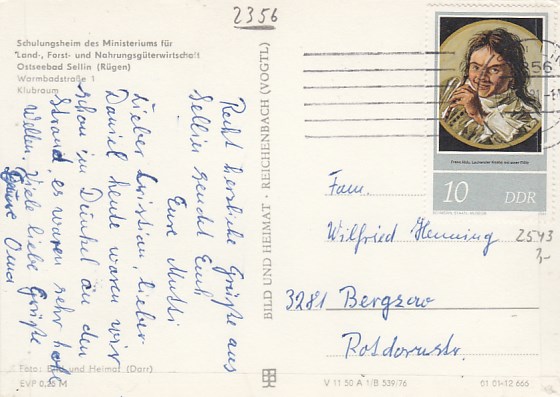 2356
Schulungsheim des Ministeriums für
Land-, Forst- und Nahrungsgüterwirtschaft
Ostseebad Sellin (Rügen)
Warmbadstraße 1
Klubraum
Recht herzliche Grüße aus
Sellin sendet Euch
Eure Mutti
Lieber Christian, lieber
Daniel heute waren wir
schon im Dunkel an den
Strand, es waren sehr hohe
Wellen, Viele liebe Grüße
Eure Oma
Foto: Bild und Heimat (Darr)
EVP 0,25 M
BILD UND HEIMAT · REICHENBACH (VOGTL)
V 11 50 A 1/B 539/76
01 01-12 665
10 DDR
Fam.
Wilfried Henning
3281 Bergzow
2543